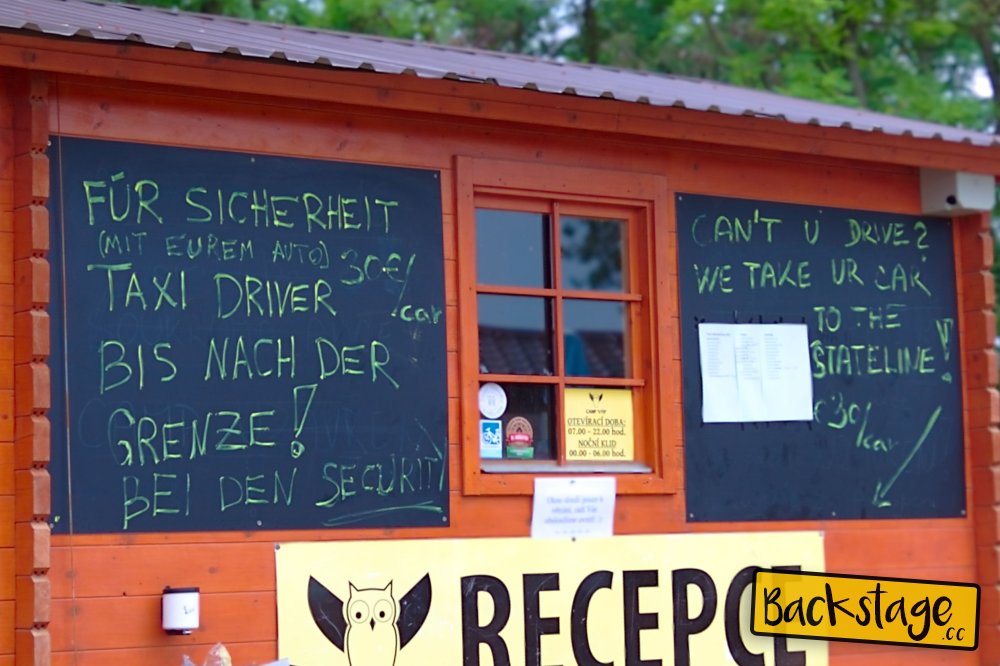 FÜR SICHERHEIT
(MIT EUREM AUTO) 30€/car
TAXI DRIVER
BIS NACH DER
GRENZE!
BEI DEN SECURITY
CAN'T U DRIVE?
WE TAKE UR CAR
TO THE
STATELINE!
€30/car
OTEVÍRACÍ DOBA:
07.00 - 22.00 hod.
NOČNÍ KLID
00.00 - 06.00 hod.
RECEPCE
Backstage.cc